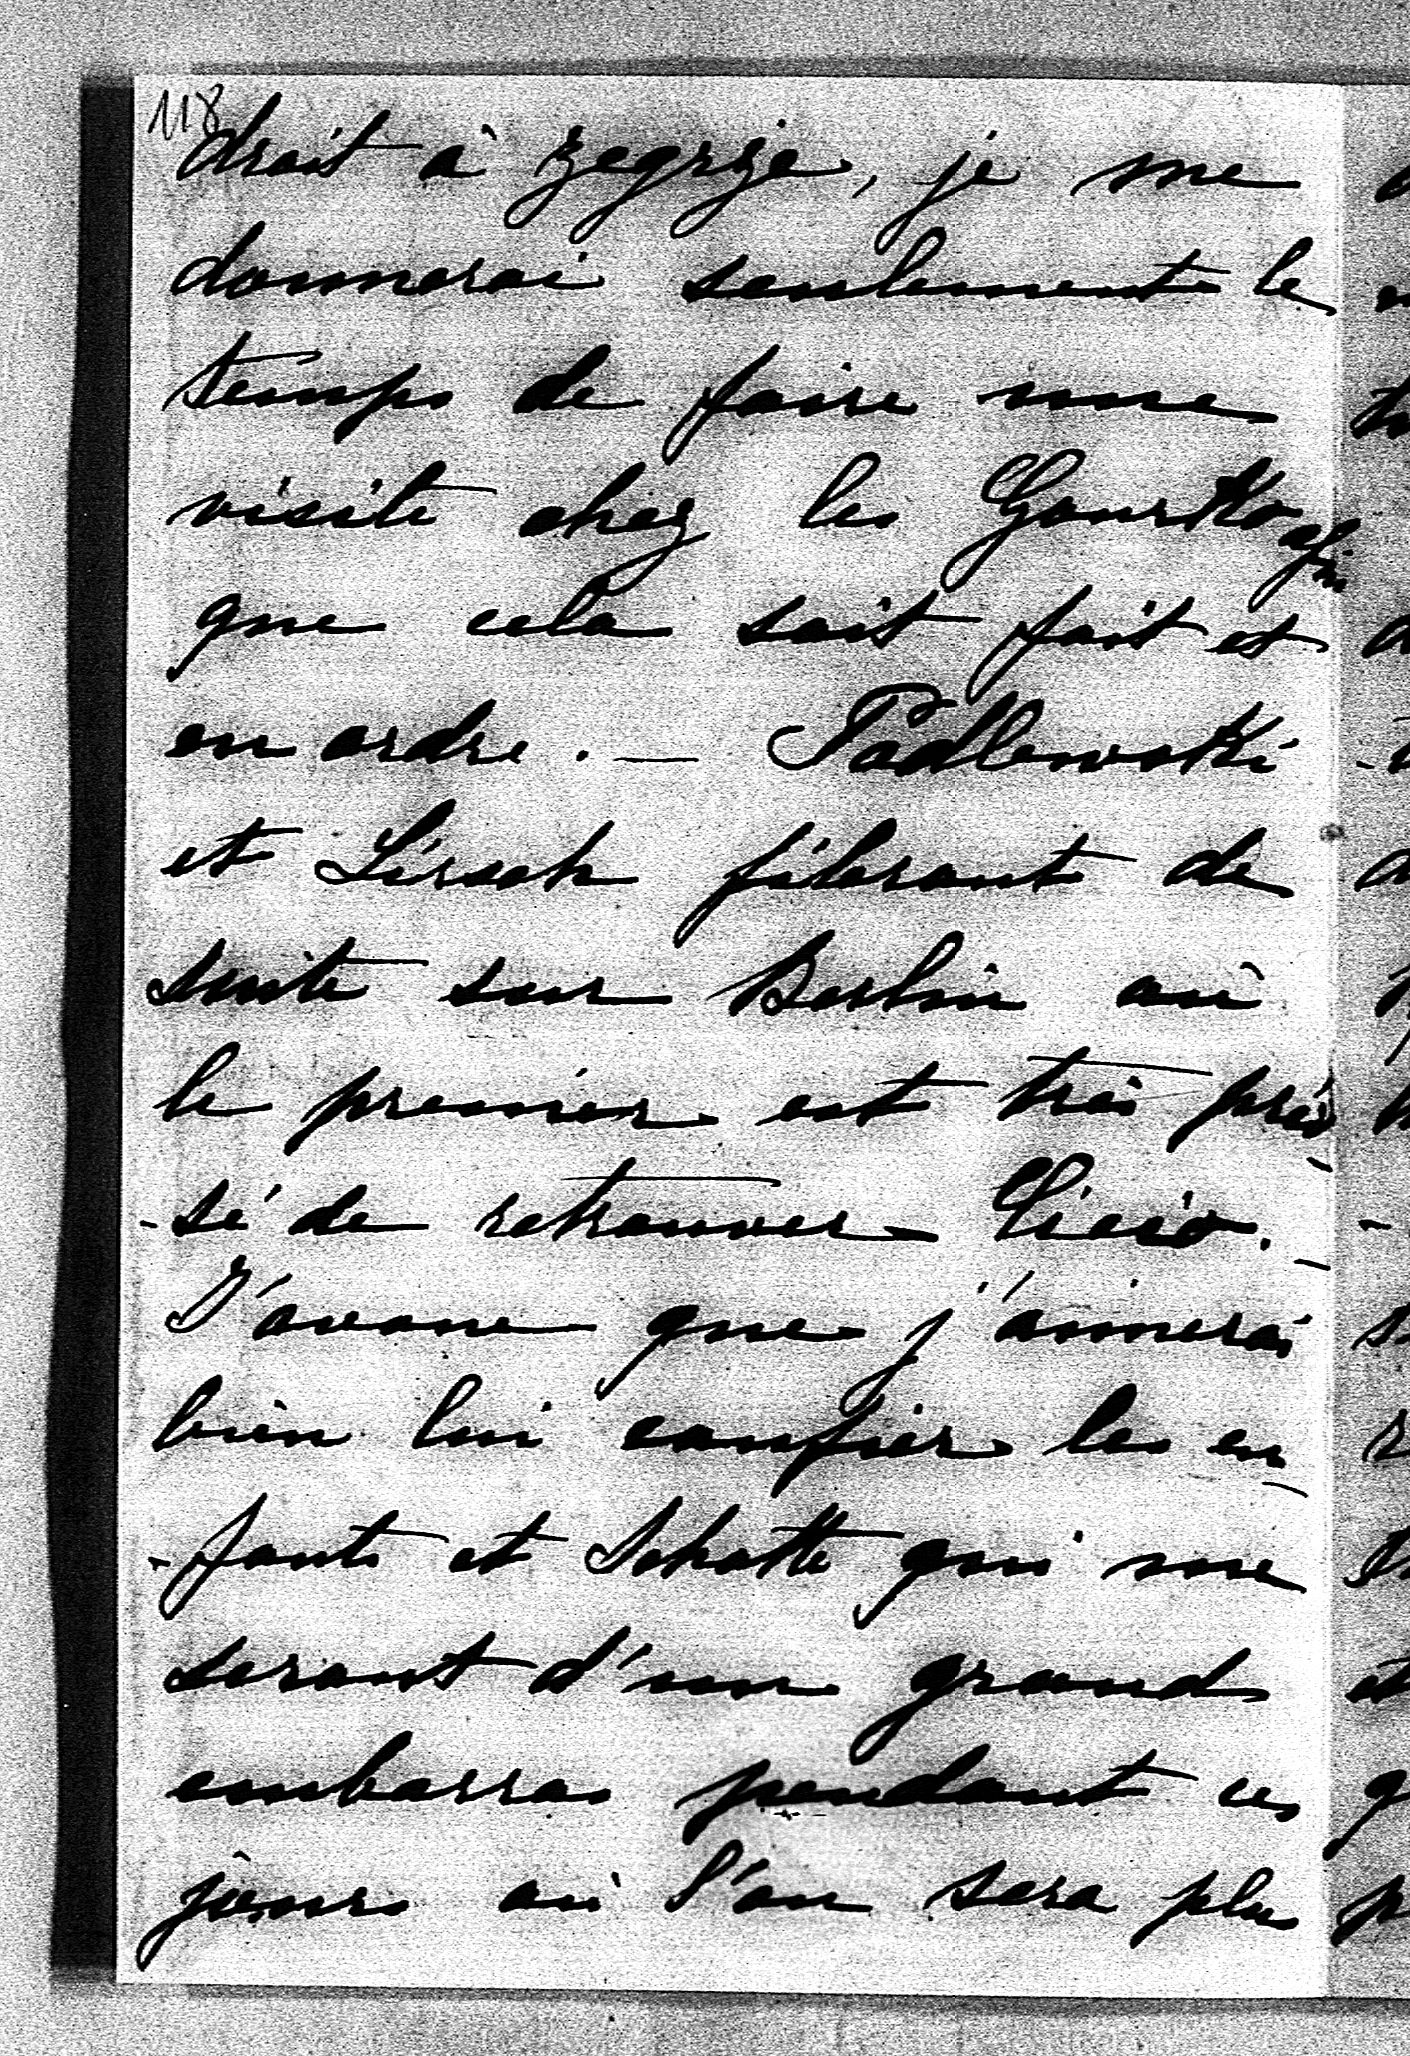 118
droit à Zegrze, je me
donnerai seulement le
temps de faire une
visite chez les Gourko afin
que cela soit fait et
en ordre. — Padlewski
et Lirsch fileront de
suite sur Berlin où
le premier est très pres-
-sé de retrouver Ciecio. —
J'avoue que j'aimerai
bien lui confier les en-
-fants et Schotte qui me
seront d'un grand
embarras pendant ces
jours où l'on sera plus